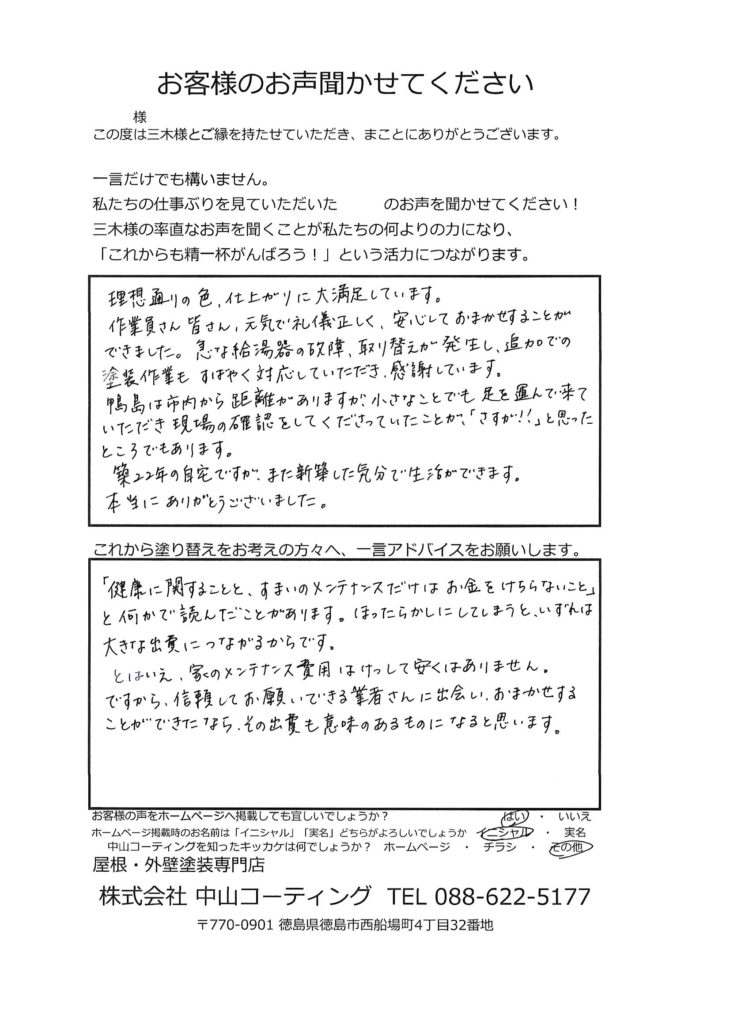 お客様のお声聞かせてください
様
この度は三木様とご縁を持たせていただき、まことにありがとうございます。
一言だけでも構いません。
私たちの仕事ぶりを見ていただいた のお声を聞かせてください！
三木様の率直なお声を聞くことが私たちの何よりの力になり、
「これからも精一杯がんばろう！」という活力につながります。
理想通りの色、仕上がりに大満足しています。
作業員さん皆さん、元気で礼儀正しく、安心しておまかせすることが
できました。急な給湯器の故障、取り替えが発生し、追加での
塗装作業も すばやく対応していただき、感謝しています。
鴨島は市内から距離がありますが、小さなことでも足を運んで来て
いただき現場の確認をしてくださっていたことが、「さすが!!」と思った
ところでもあります。
築22年の自宅ですが、また新築した気分で生活ができます。
本当に ありがとうございました。
これから塗り替えをお考えの方々へ、一言アドバイスをお願いします。
「健康に関することと、すまいのメンテナンスだけは お金をけちらないこと」
と何かで読んだことがあります。ほったらかしにしてしまうと、いずれは
大きな出費につながるからです。
とはいえ、家のメンテナンス費用はけっして安くはありません。
ですから、信頼してお願いできる業者さんに出会い、おまかせする
ことができたなら、その出費も意味のあるものになると思います。
お客様の声をホームページへ掲載しても宜しいでしょうか？ はい ・ いいえ
ホームページ掲載時のお名前は「イニシャル」「実名」どちらがよろしいでしょうか イニシャル ・ 実名
中山コーティングを知ったキッカケは何でしょうか？ ホームページ ・ チラシ ・ その他
屋根・外壁塗装専門店
株式会社 中山コーティング TEL 088-622-5177
〒770-0901 徳島県徳島市西船場町4丁目32番地